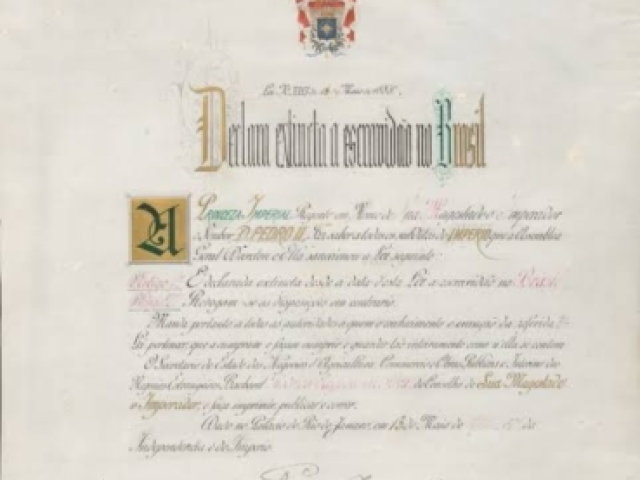 Lei Nº 3353 de 13 de Maio de 1888.
Declara extincta a escravidão no Brasil
A Princeza Imperial Regente em Nome de Sua Magestade o Imperador
o Senhor D. PEDRO II, Faz saber a todos os subditos do IMPERIO que a Assembléa
Geral Decretou e Ella sanccionou a Lei seguinte:
É declarada extincta desde a data desta Lei a escravidão no Brazil
Revogam-se as disposições em contrario.
Manda portanto a todas as autoridades a quem o conhecimento e execução da referida
Lei pertencer, que a cumpram e façam cumprir e guardar tão inteiramente como n'ella se contem
O Secretario de Estado dos Negocios d'Agricultura, Commercio e Obras Publicas e Interino dos
Negocios Estrangeiros, Bacharel do Conselho de Sua Magestade
o Imperador, o faça imprimir, publicar e correr.
Dado no Palacio do Rio de Janeiro, em 13 de Maio de da
Independencia e do Imperio.